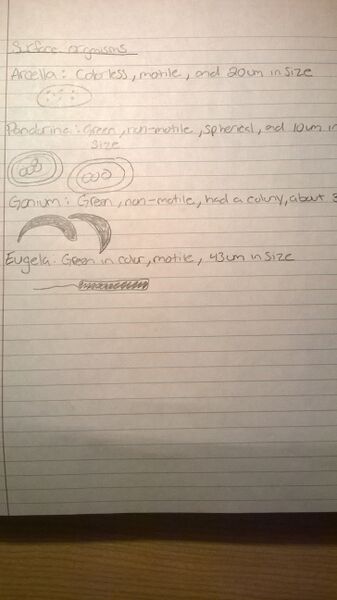 Surface organisms
Arcella: Colorless, motile, and 20um in size
Pandorina: Green, non-motile, spherical, and 10um in
size
Gonium: Green, non-motile, had a colony, about 3
Eugela: Green in color, motile, 43um in size